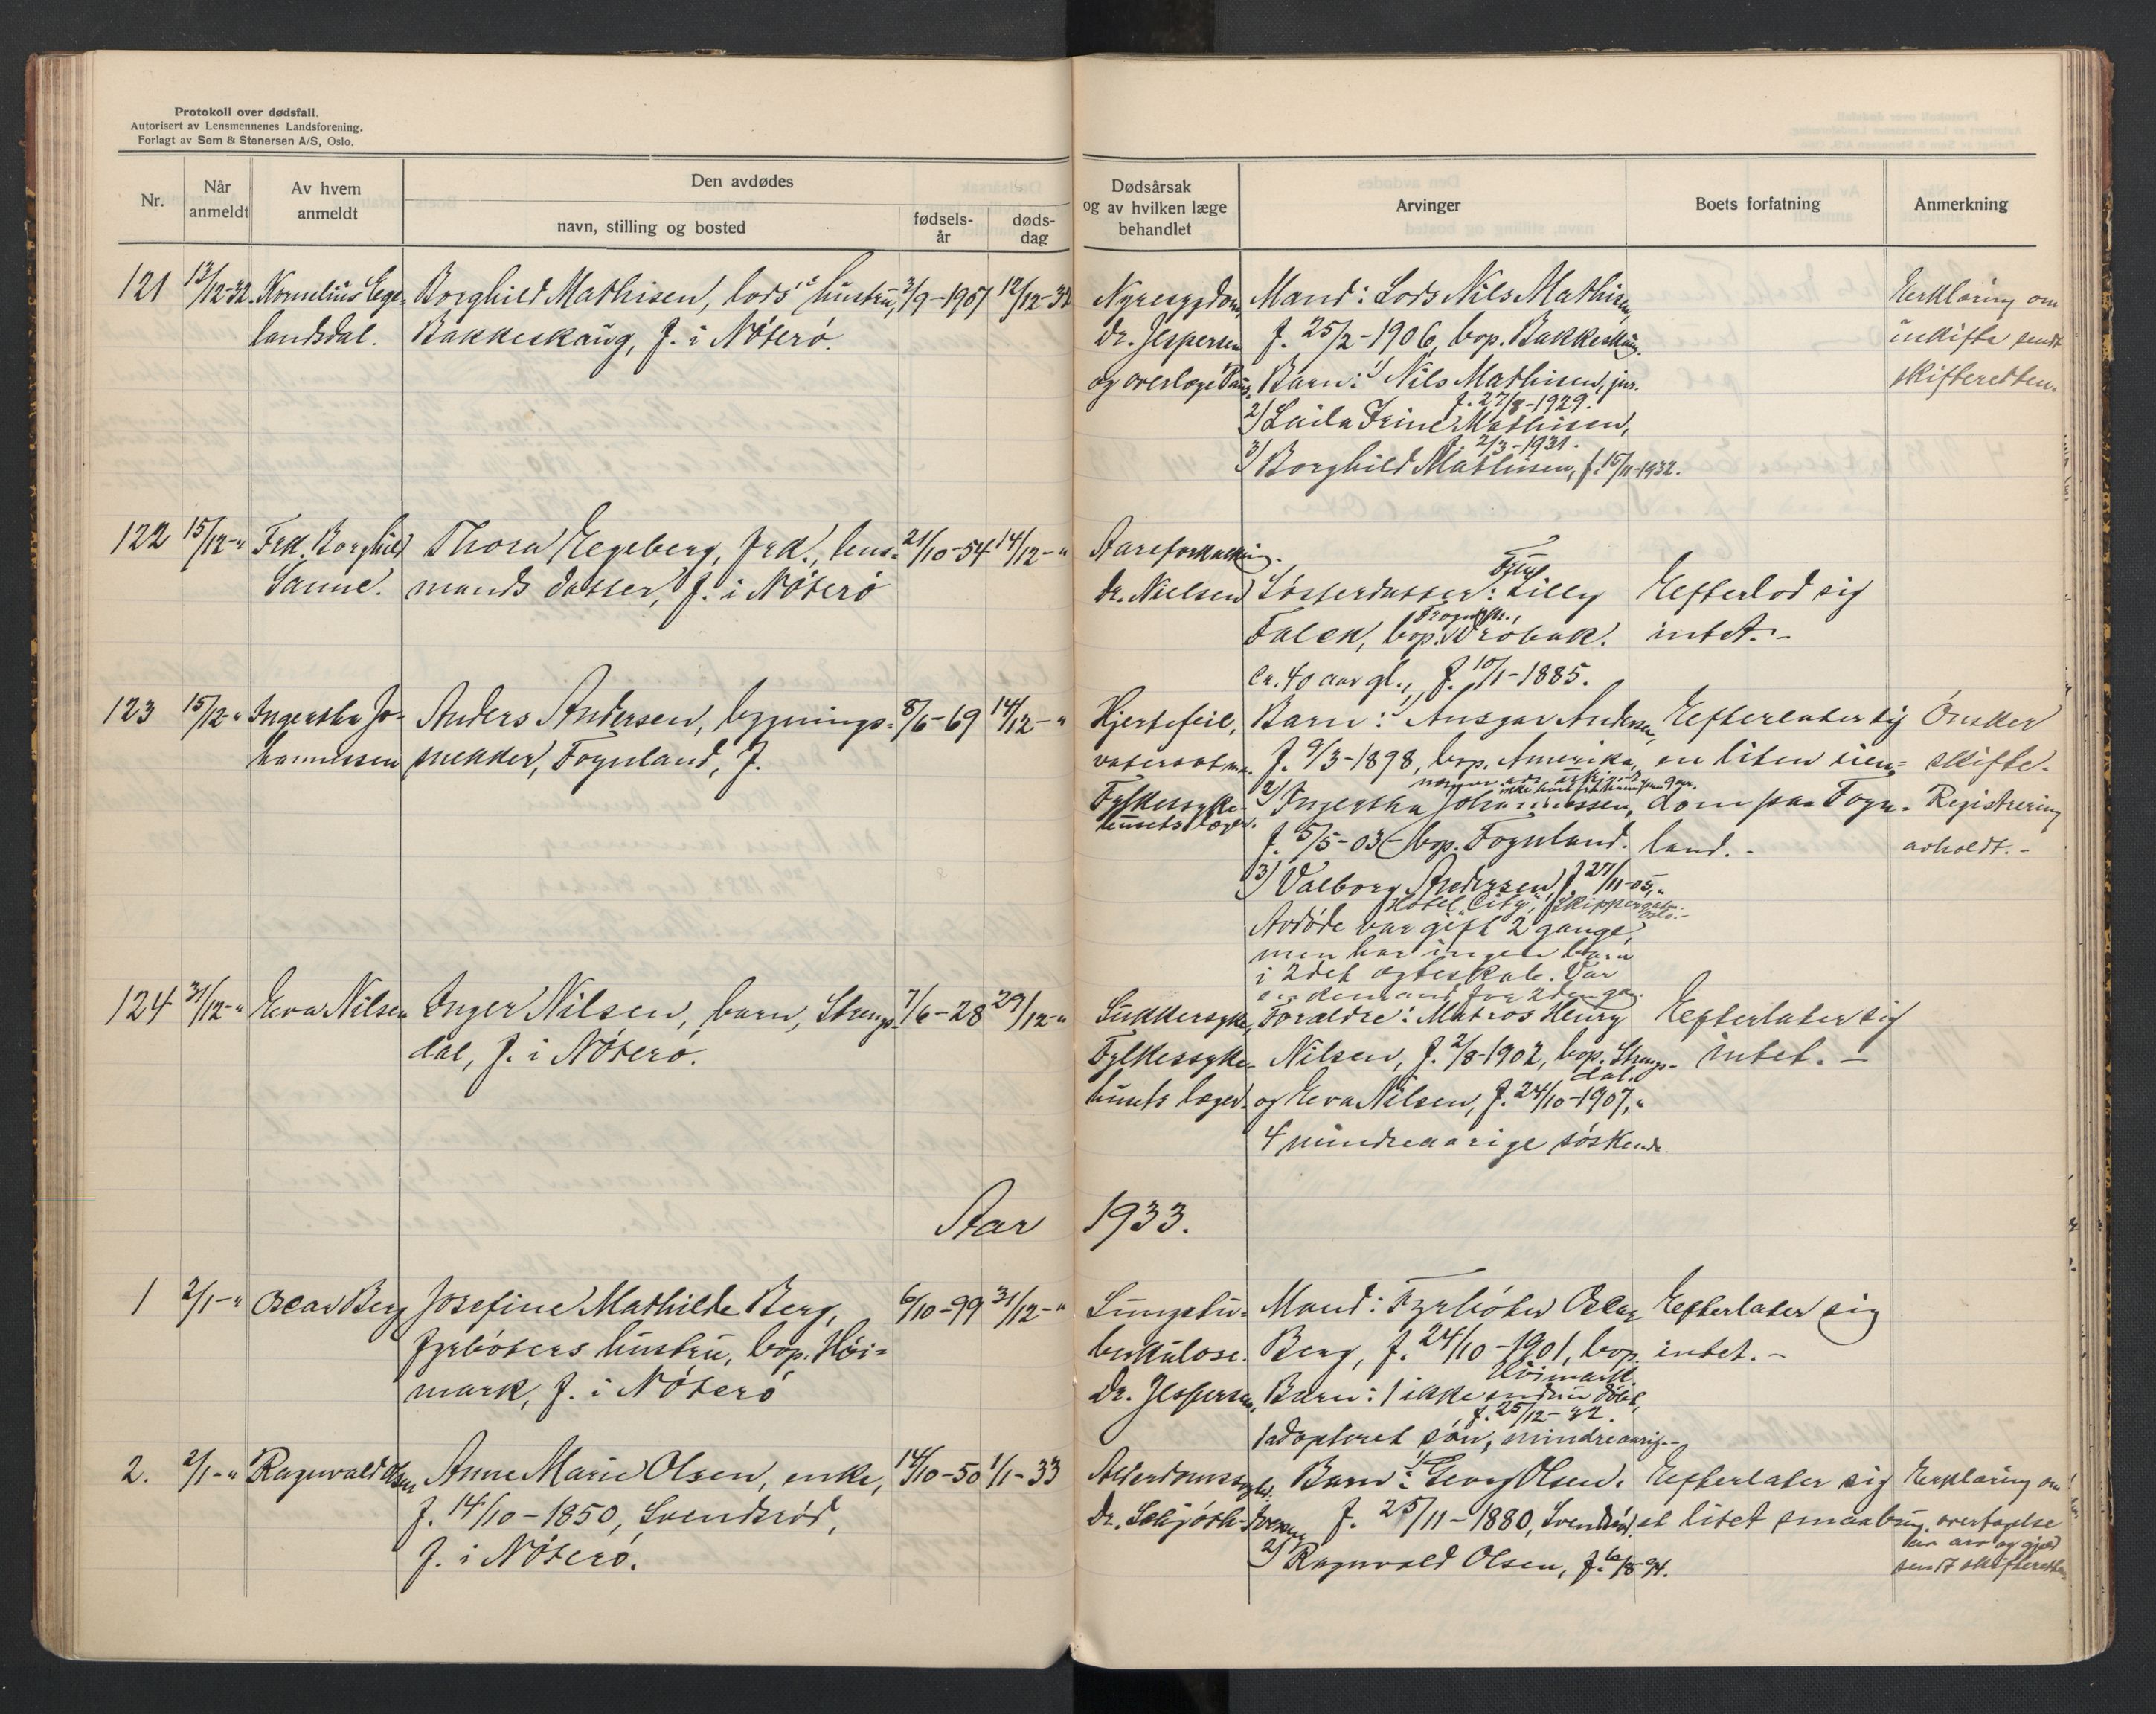 Protokoll over dødsfall.
Autorisert av Lensmennenes Landsforening.
Forlagt av Sem & Stenersen A/S, Oslo.
Nr.
Når anmeldt
Av hvem anmeldt
Den avdødes
navn, stilling og bosted
fødsels-år
døds-dag
Dødsårsak og av hvilken læge behandlet
Arvinger
Boets forfatning
Anmerkning
121
13/12-32
Kornelius Ege-
landsdal.
Borghild Mathisen, lods's hustru,
Bakkeskaug, f. i Nøterø.
3/9-1907
12/12-32
Nyresygdom,
dr. Jespersen
og overlæge
Mand: Lods Nils Mathisen,
f. 25/2-1906, bop. Bakkeskaug.
Barn: 1) Nils Mathisen, jur.
f. 27/8-1929.
2) Laila Irine Mathisen,
f. 2/3-1931.
3) Borghild Mathisen, f. 15/11-1932.
Erklæring om
uskifte sendt
skifteretten.
122
15/12-"
Frk. Borghild
Sanne.
Thora Egeberg, frk., lens-
mands datter, f. i Nøterø
21/10-54
14/12-"
Aareforkalkning.
dr. Nielsen
Søsterdatter: Frk. Lilly
Falck, bop. Drøbak.
ca. 40 aar gl., f. 10/1-1885.
Efterlod sig
intet.-
123
15/12-"
Ingertha Jo-
hannessen
Anders Andersen, bygnings-
snekker, Fognland, f.
8/6-69
14/12-"
Hjertefeil,
vatersot m.m.
Fylkessyke-
husets læger.
Barn: 1) Ansgar Andersen,
f. 9/3-1898, bop. Amerika,
2) Ingertha Johannessen,
f. 5/5-03 bop. Fognland.
3) Valborg Andersen, f. 27/11-05, "
Hotel "City", Skippergatn. Oslo.-
Avdøde var gift 2 gange,
men har ingen barn
i 2det egteskab. Var
enkemand for 2den gan.
Efterlater sig
en liten eien-
dom paa Fogn-
land.-
Ønsker
skifte.
Registrering
avholdt.-
124
31/12-"
Eva Nilsen
Inger Nilsen, barn, Strengs-
dal, f. i Nøterø.
7/6-28
29/12-"
Sukkersyke,
Fylkessyke-
husets læger.
Forældre: Matros Henry
Nilsen, f. 2/8-1902, bop. Strengs-
dal.
og Eva Nilsen, f. 24/10-1907, "
4 mindreaarige søskende.
Efterlater sig
intet.-
Aar 1933.
1
2/1-"
Oscar Berg
Josefine Mathilde Berg,
fyrbøters hustru, bop. Høi-
mark, f. i Nøterø
6/10-99
31/12-"
Lungetu-
berkulose.
Dr. Jespersen.
Mand: Fyrbøter Oscar
Berg, f. 24/10-1901, bop.
Høimark
Barn: 1 ikke endnu døbt,
f. 25/12-32.
1 adopteret søn, mindreaarig.-
Efterlater sig
intet.-
2.
2/1-"
Ragnvald Olsen
Anne Marie Olsen, enke,
f. 14/10-1850, Svendsrød,
f. i Nøterø.
14/10-50
1/1-33
Alderdomssygd.
Dr.
Barn: 1) Georg Olsen.
f. 25/11-1880, Svendsrød.
2) Ragnvald Olsen, f. 6/8-94.
Efterlater sig
et litet smaabrug.
Erklæring om
overtagelse
av arv og gjæld
sendt skifteretten